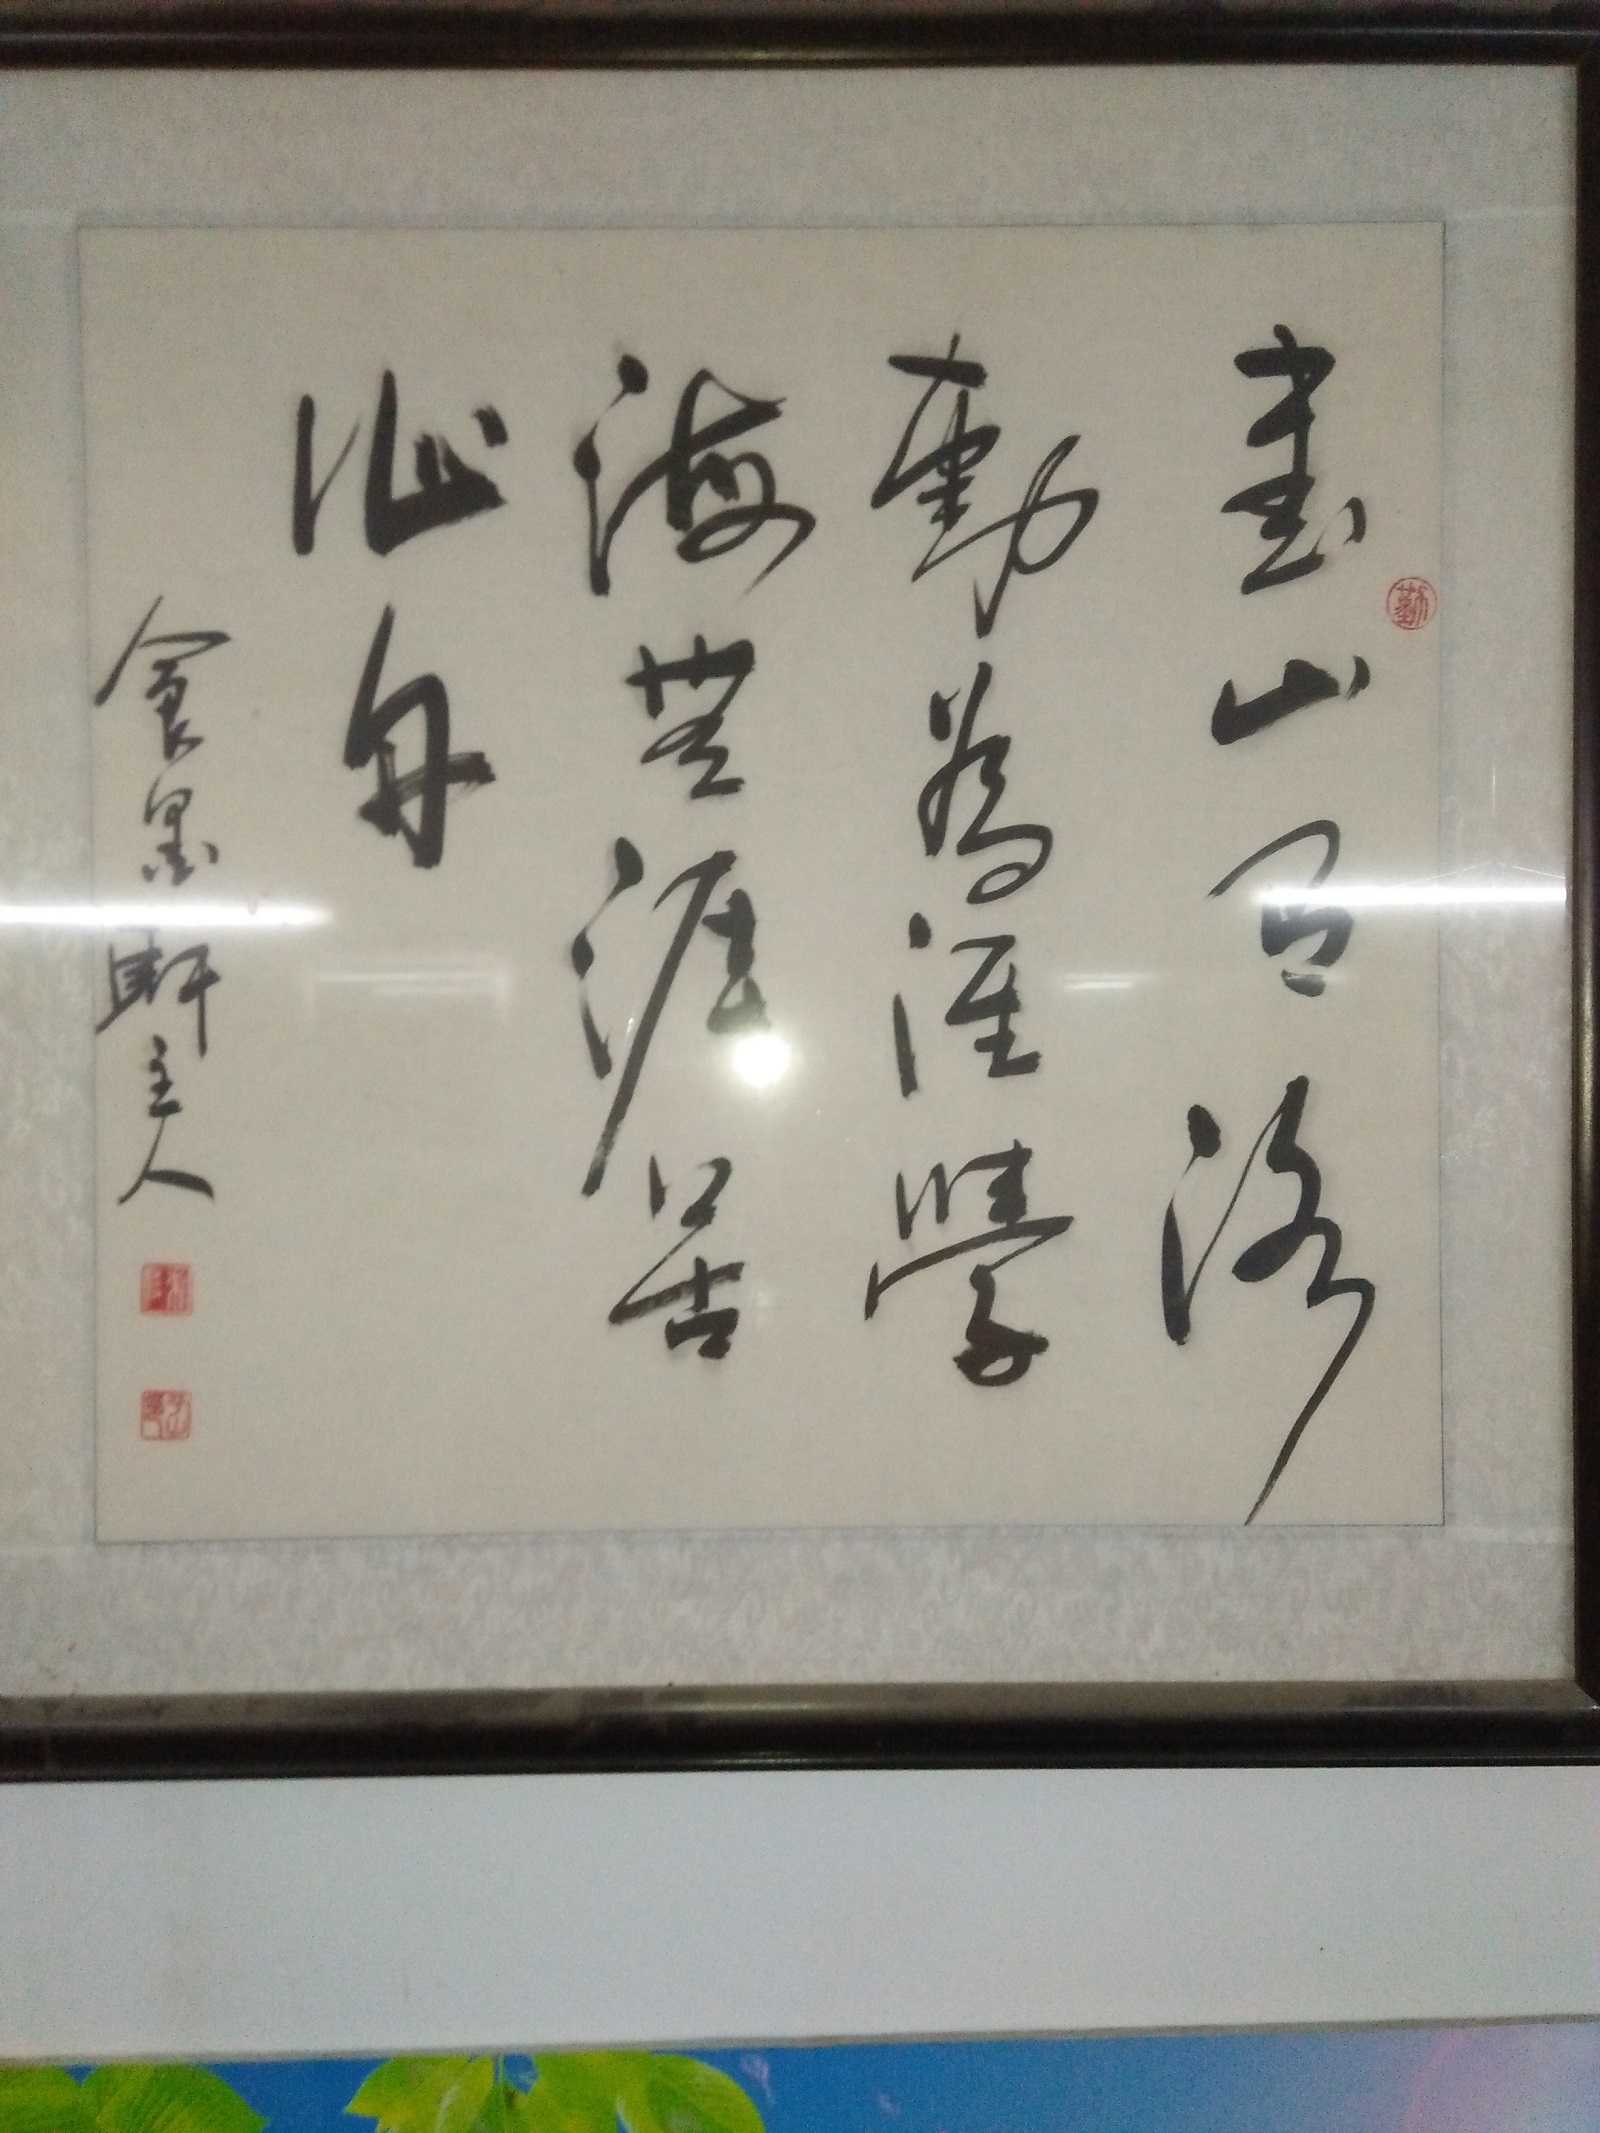 書山有路
勤為徑學
海無涯苦
作舟
食墨軒主人
勤